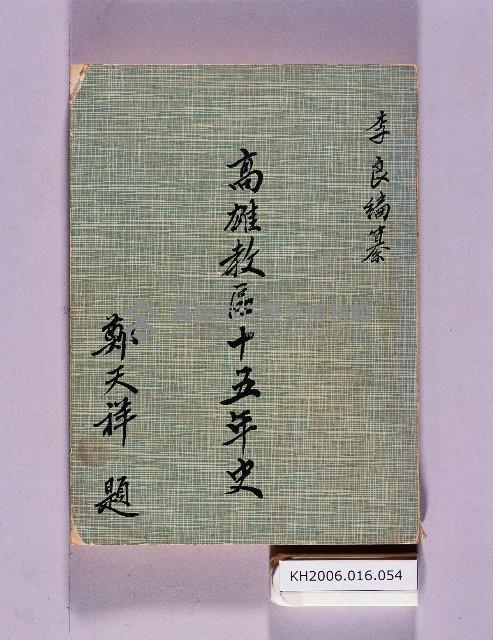 李良編纂
高雄教區十五年史
鄭天祥 題
KH2006.016.054